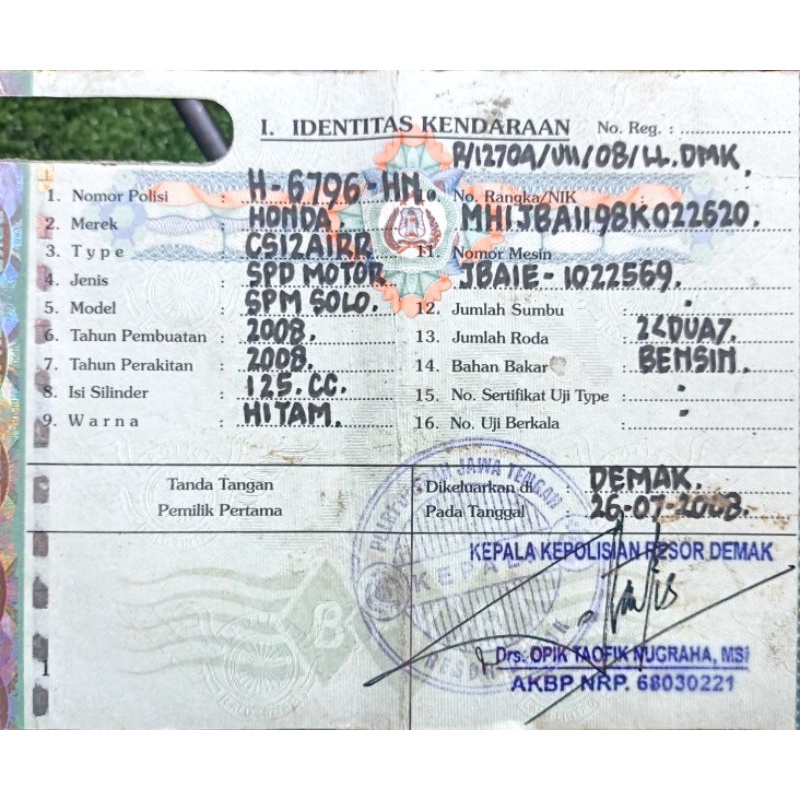 I. IDENTITAS KENDARAAN No. Reg. :
P/12704/VII/08/LL.DMK.
1. Nomor Polisi : H-6796-HN.
2. Merek : HONDA.
3. Type : CS12A1RR
4. Jenis : SPD MOTOR
5. Model : SPM SOLO.
6. Tahun Pembuatan : 2008.
7. Tahun Perakitan : 2008.
8. Isi Silinder : 125.CC.
9. Warna : HITAM.
10. No. Rangka/NIK
MH1JBA1198K022620.
11. Nomor Mesin
JBA1E-1022569.
12. Jumlah Sumbu : .
13. Jumlah Roda : 2<DUA7.
14. Bahan Bakar : BENSIN.
15. No. Sertifikat Uji Type :
16. No. Uji Berkala :
Tanda Tangan
Pemilik Pertama
Dikeluarkan di : DEMAK.
Pada Tanggal : 26-07-2008.
KEPALA KEPOLISIAN RESOR DEMAK
JAWA TENGAH
KEPALA
RESOR
Drs. OPIK TAOFIK NUGRAHA, MSi
AKBP NRP. 68030221
B
1